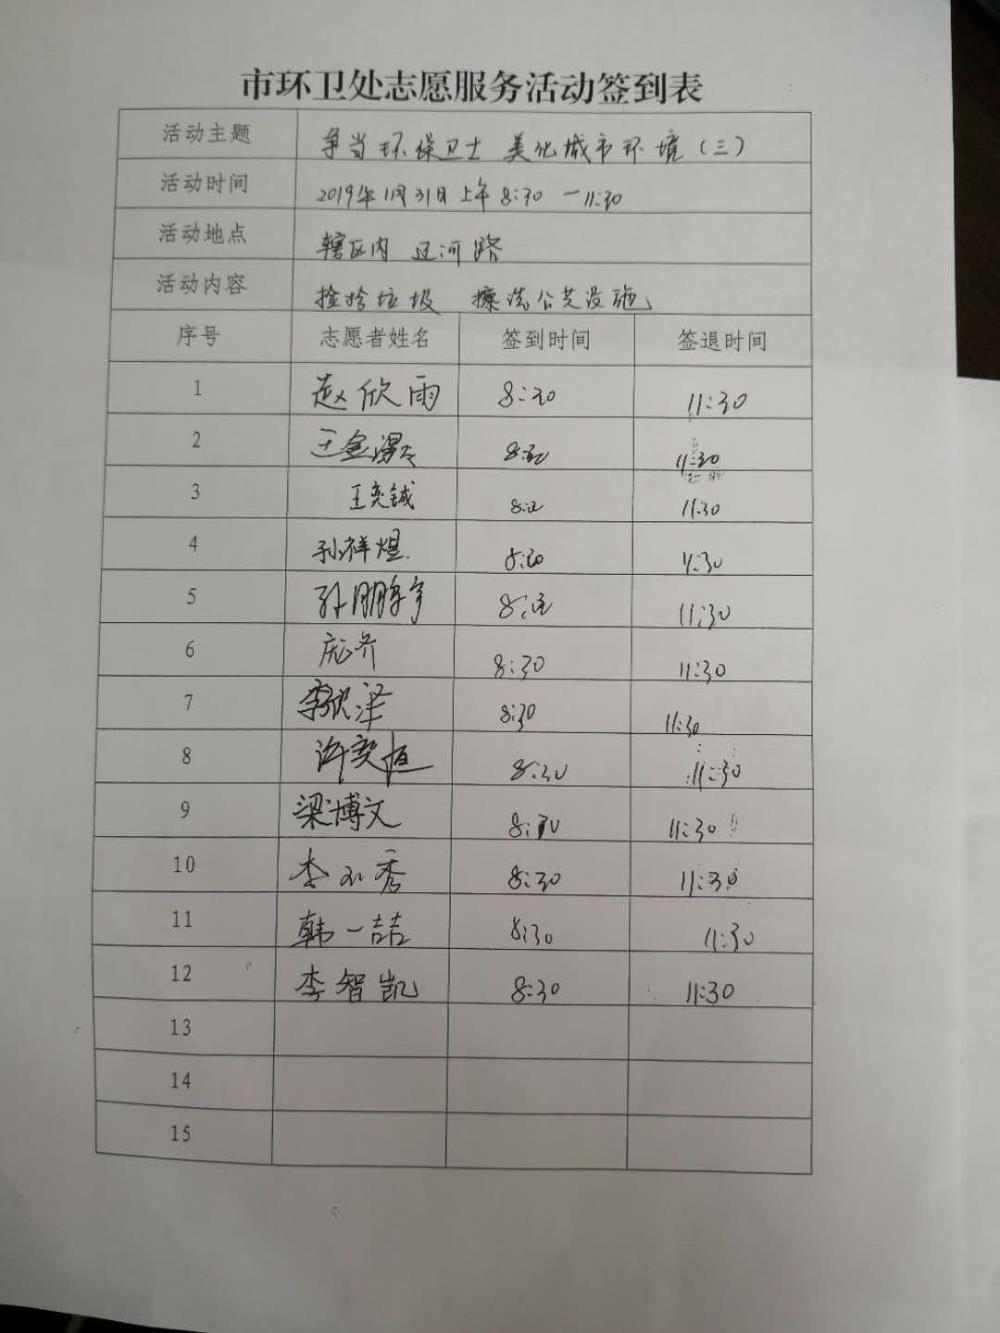 市环卫处志愿服务活动签到表
活动主题 争当环保卫士 美化城市环境（三）
活动时间 2019年1月31日上午8:30－11:30
活动地点 辖区内 辽河路
活动内容 捡拾垃圾 擦洗公共设施
序号 志愿者姓名 签到时间 签退时间
1 赵欣雨 8:30 11:30
2 8:30 11:30
3 王奕铖 8:30 11:30
4 孙祥煜 8:30 11:30
5 8:30 11:30
6 8:30 11:30
7 李欣泽 8:30 11:30
8 许奕恒 8:30 11:30
9 梁博文 8:30 11:30
10 8:30 11:30
11 韩一喆 8:30 11:30
12 李智凯 8:30 11:30
13
14
15